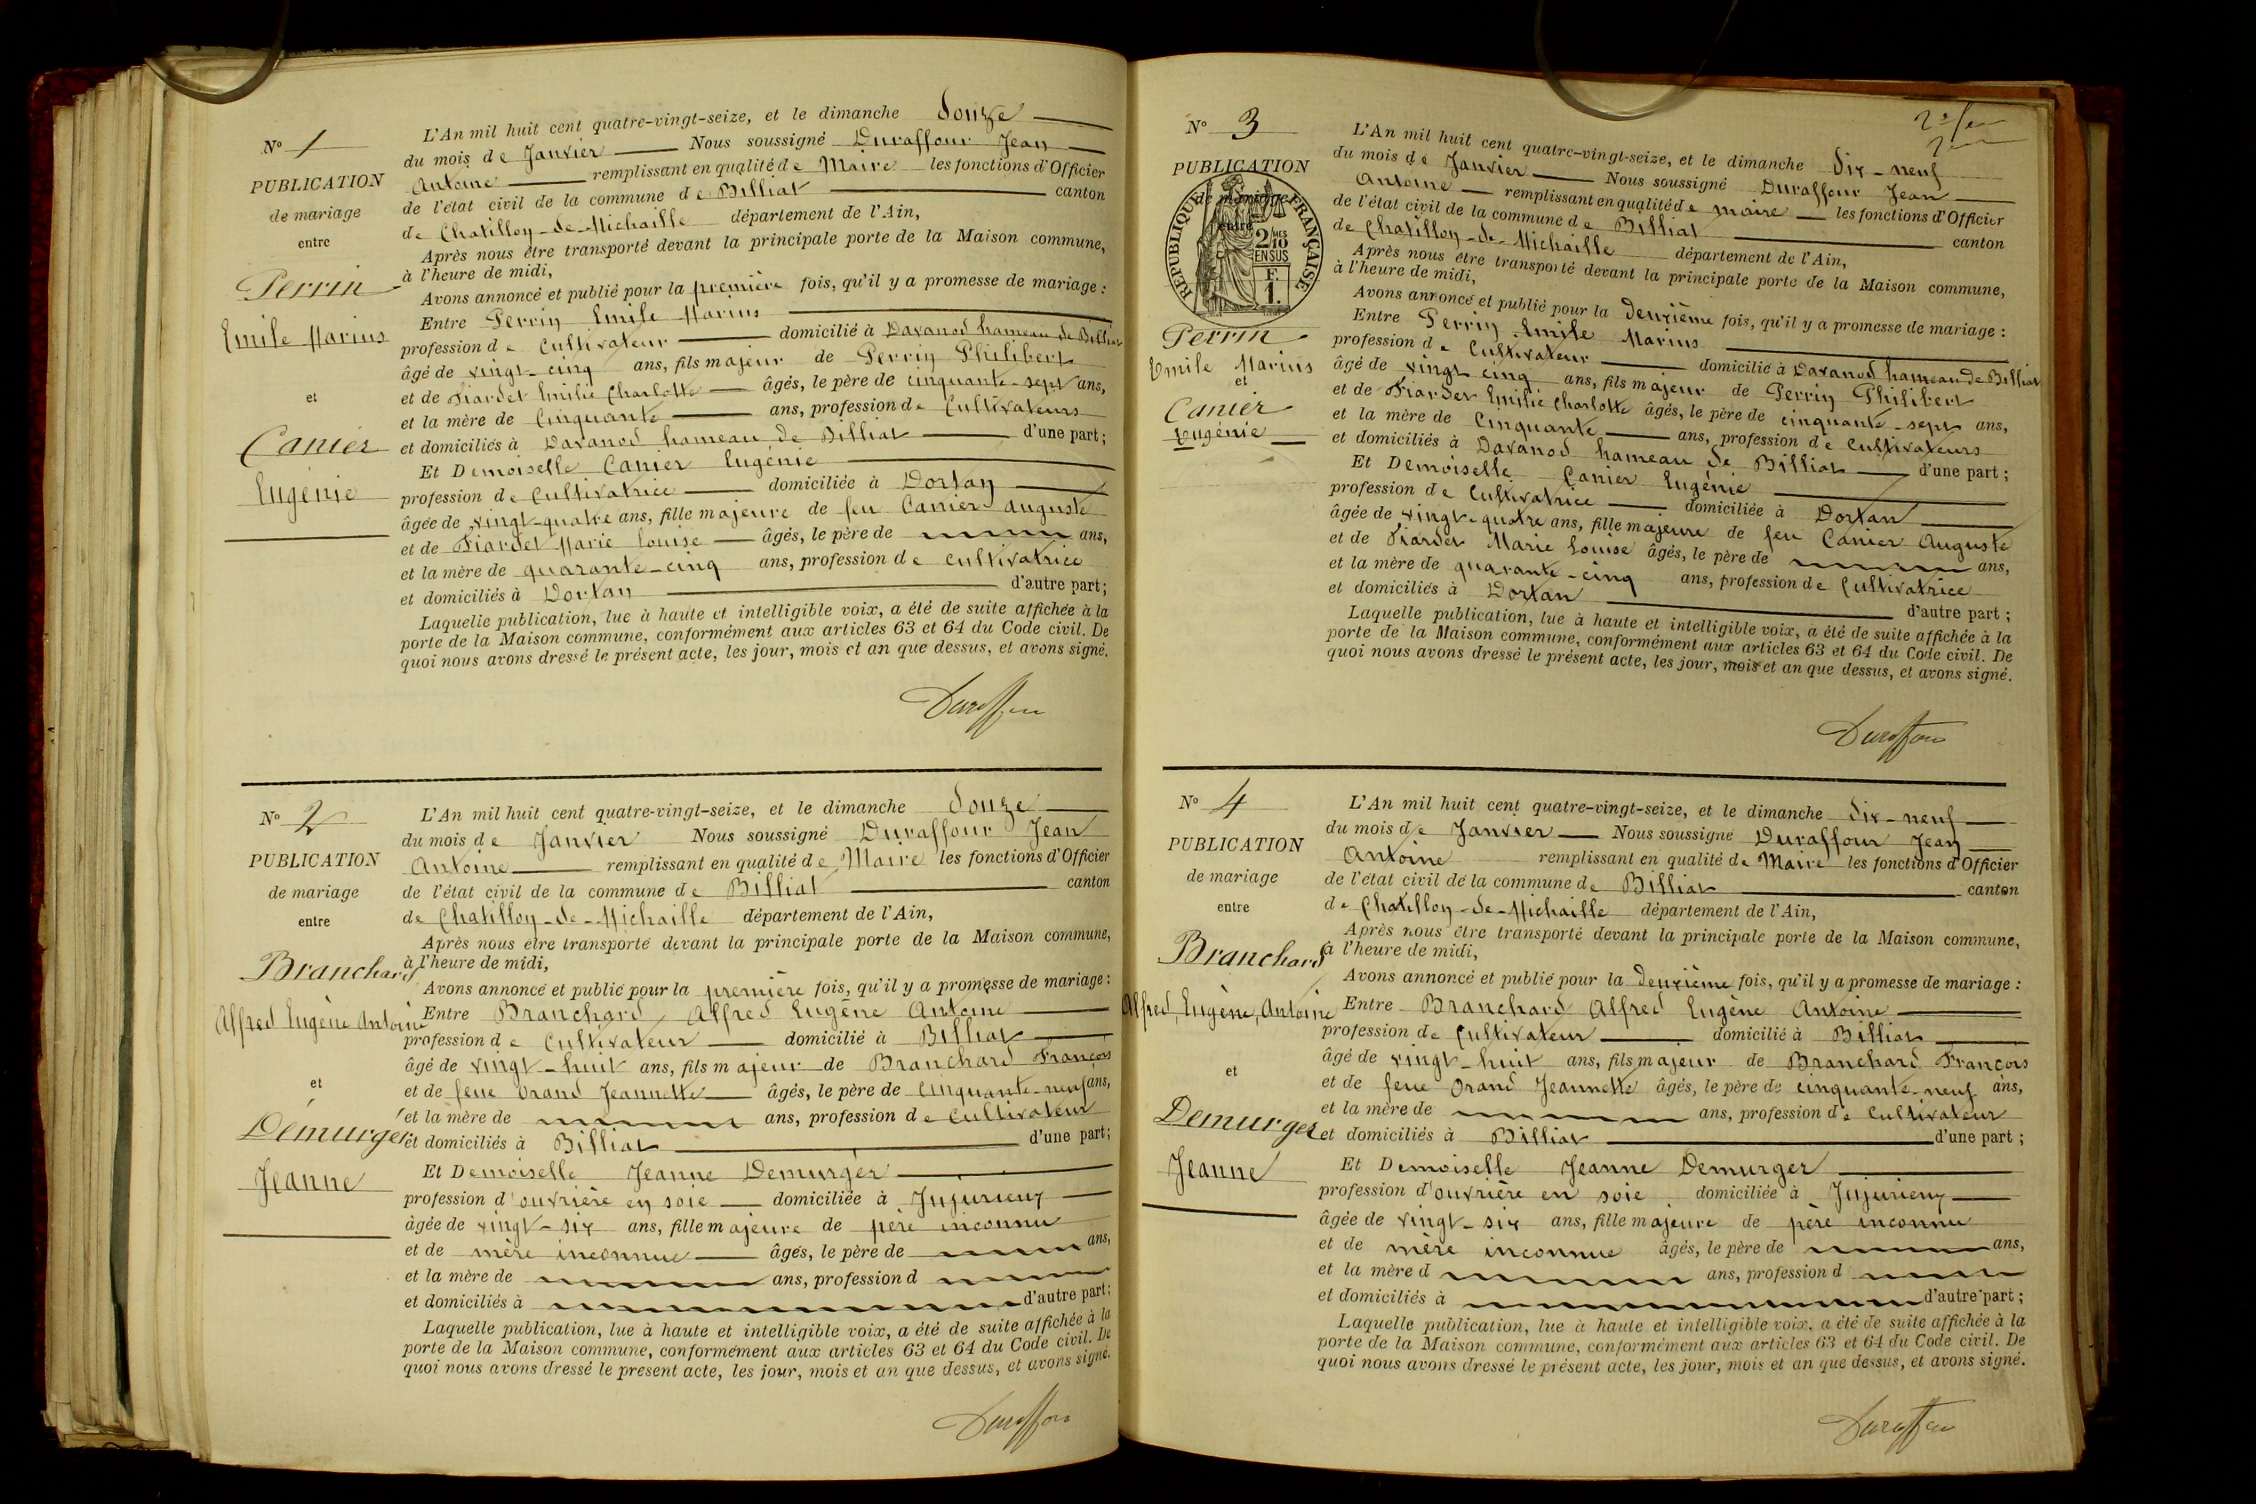 N° 1
PUBLICATION
de mariage
entre
Perrin
Emile Marius
et
Canier
Eugénie
L'An mil huit cent quatre-vingt-seize, et le dimanche Douze
du mois de Janvier Nous soussigné Duraffour Jean
Antoine remplissant en qualité de Maire les fonctions d'Officier
de l'état civil de la commune de Billiat canton
de Chatillon-de-Michaille département de l'Ain,
Après nous être transporté devant la principale porte de la Maison commune,
à l'heure de midi,
Avons annoncé et publié pour la première fois, qu'il y a promesse de mariage :
Entre Perrin Emile Marius
profession de Cultivateur domicilié à Davanod hameau de Billiat
âgé de vingt-cinq ans, fils majeur de Perrin Philibert
et de Fiardet Emilie Charlotte âgés, le père de cinquante-sept ans,
et la mère de Cinquante ans, profession de Cultivateurs
et domiciliés à Davanod hameau de Billiat d'une part;
Et Demoiselle Canier Eugénie
profession de Cultivatrice domiciliée à Dortan
âgée de vingt-quatre ans, fille majeure de feu Canier Auguste
et de Fiardet Marie Louise âgés, le père de ans,
et la mère de quarante-cinq ans, profession de cultivatrice
et domiciliés à Dortan d'autre part;
Laquelle publication, lue à haute et intelligible voix, a été de suite affichée à la
porte de la Maison commune, conformément aux articles 63 et 64 du Code civil. De
quoi nous avons dressé le présent acte, les jour, mois et an que dessus, et avons signé.
Duraffour
N° 2
PUBLICATION
de mariage
entre
Branchard
Alfred Eugène Antoine
et
Démurger
Jeanne
L'An mil huit cent quatre-vingt-seize, et le dimanche Douze
du mois de Janvier Nous soussigné Duraffour Jean
Antoine remplissant en qualité de Maire les fonctions d'Officier
de l'état civil de la commune de Billiat canton
de Chatillon-de-Michaille département de l'Ain,
Après nous être transporté devant la principale porte de la Maison commune,
à l'heure de midi,
Avons annoncé et publié pour la première fois, qu'il y a promesse de mariage :
Entre Branchard Alfred Eugène Antoine
profession de Cultivateur domicilié à Billiat
âgé de vingt-huit ans, fils majeur de Branchard François
et de feue Orand Jeannette âgés, le père de Cinquante-neuf ans,
et la mère de ans, profession de Cultivateur
et domiciliés à Billiat d'une part;
Et Demoiselle Jeanne Demurger
profession d'ouvrière en soie domiciliée à Jujurieux
âgée de vingt-six ans, fille majeure de père inconnu
et de mère inconnue âgés, le père de ans,
et la mère de ans, profession d
et domiciliés à d'autre part;
Laquelle publication, lue à haute et intelligible voix, a été de suite affichée à la
porte de la Maison commune, conformément aux articles 63 et 64 du Code civil. De
quoi nous avons dressé le présent acte, les jour, mois et an que dessus, et avons signé.
Duraffour
N° 3
PUBLICATION
de mariage
entre
RÉPUBLIQUE FRANÇAISE
2 MES 10
EN SUS
F.
1.
Perrin
Emile Marius
et
Canier
Eugénie
L'An mil huit cent quatre-vingt-seize, et le dimanche Dix-neuf
du mois de Janvier Nous soussigné Duraffour Jean
Antoine remplissant en qualité de maire les fonctions d'Officier
de l'état civil de la commune de Billiat canton
de Chatillon-de-Michaille département de l'Ain,
Après nous être transporté devant la principale porte de la Maison commune,
à l'heure de midi,
Avons annoncé et publié pour la Deuxième fois, qu'il y a promesse de mariage :
Entre Perrin Emile Marius
profession de Cultivateur domicilié à Davanod hameau de Billiat
âgé de vingt cinq ans, fils majeur de Perrin Philibert
et de Fiardet Emilie Charlotte âgés, le père de cinquante-sept ans,
et la mère de Cinquante ans, profession de Cultivateurs
et domiciliés à Davanod hameau de Billiat d'une part ;
Et Demoiselle Canier Eugénie
profession de Cultivatrice domiciliée à Dortan
âgée de vingt-quatre ans, fille majeure de feu Canier Auguste
et de Fiardet Marie Louise âgés, le père de ans,
et la mère de quarante-cinq ans, profession de Cultivatrice
et domiciliés à Dortan d'autre part ;
Laquelle publication, lue à haute et intelligible voix, a été de suite affichée à la
porte de la Maison commune, conformément aux articles 63 et 64 du Code civil. De
quoi nous avons dressé le présent acte, les jour, mois et an que dessus, et avons signé.
Duraffour
N° 4
PUBLICATION
de mariage
entre
Branchard
Alfred, Eugène, Antoine
et
Demurger
Jeanne
L'An mil huit cent quatre-vingt-seize, et le dimanche Dix-neuf
du mois de Janvier Nous soussigné Duraffour Jean
Antoine remplissant en qualité de Maire les fonctions d'Officier
de l'état civil de la commune de Billiat canton
de Chatillon-de-Michaille département de l'Ain,
Après nous être transporté devant la principale porte de la Maison commune,
à l'heure de midi,
Avons annoncé et publié pour la Deuxième fois, qu'il y a promesse de mariage :
Entre Branchard Alfred Eugène Antoine
profession de Cultivateur domicilié à Billiat
âgé de vingt-huit ans, fils majeur de Branchard François
et de feue Orand Jeannette âgés, le père de cinquante-neuf ans,
et la mère de ans, profession de Cultivateur
et domiciliés à Billiat d'une part ;
Et Demoiselle Jeanne Demurger
profession d'ouvrière en soie domiciliée à Jujurieux
âgée de vingt-six ans, fille majeure de père inconnu
et de mère inconnue âgés, le père de ans,
et la mère d ans, profession d
et domiciliés à d'autre part ;
Laquelle publication, lue à haute et intelligible voix, a été de suite affichée à la
porte de la Maison commune, conformément aux articles 63 et 64 du Code civil. De
quoi nous avons dressé le présent acte, les jour, mois et an que dessus, et avons signé.
Duraffour